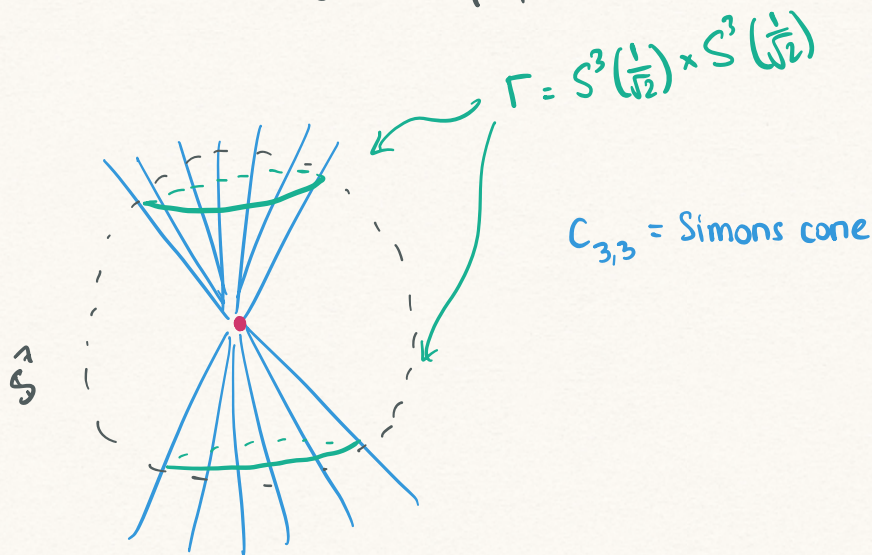 Γ = S³(1/√2) × S³(1/√2)
C₃,₃ = Simons cone